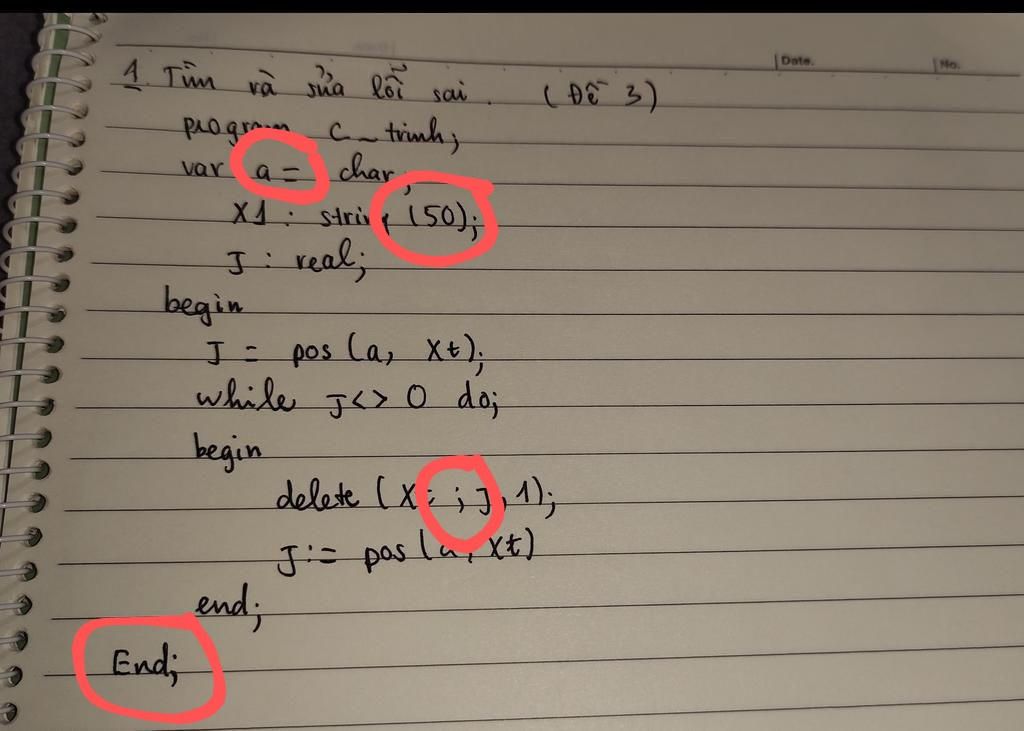 Date.
No.
1 Tìm và sửa lỗi sai. (Đề 3)
program C_trinh;
var a = char;
X1 : string (50);
J : real;
begin
J = pos (a, Xt);
while J <> 0 do;
begin
delete ( ; J, 1);
J := pos (a, Xt)
end;
End;